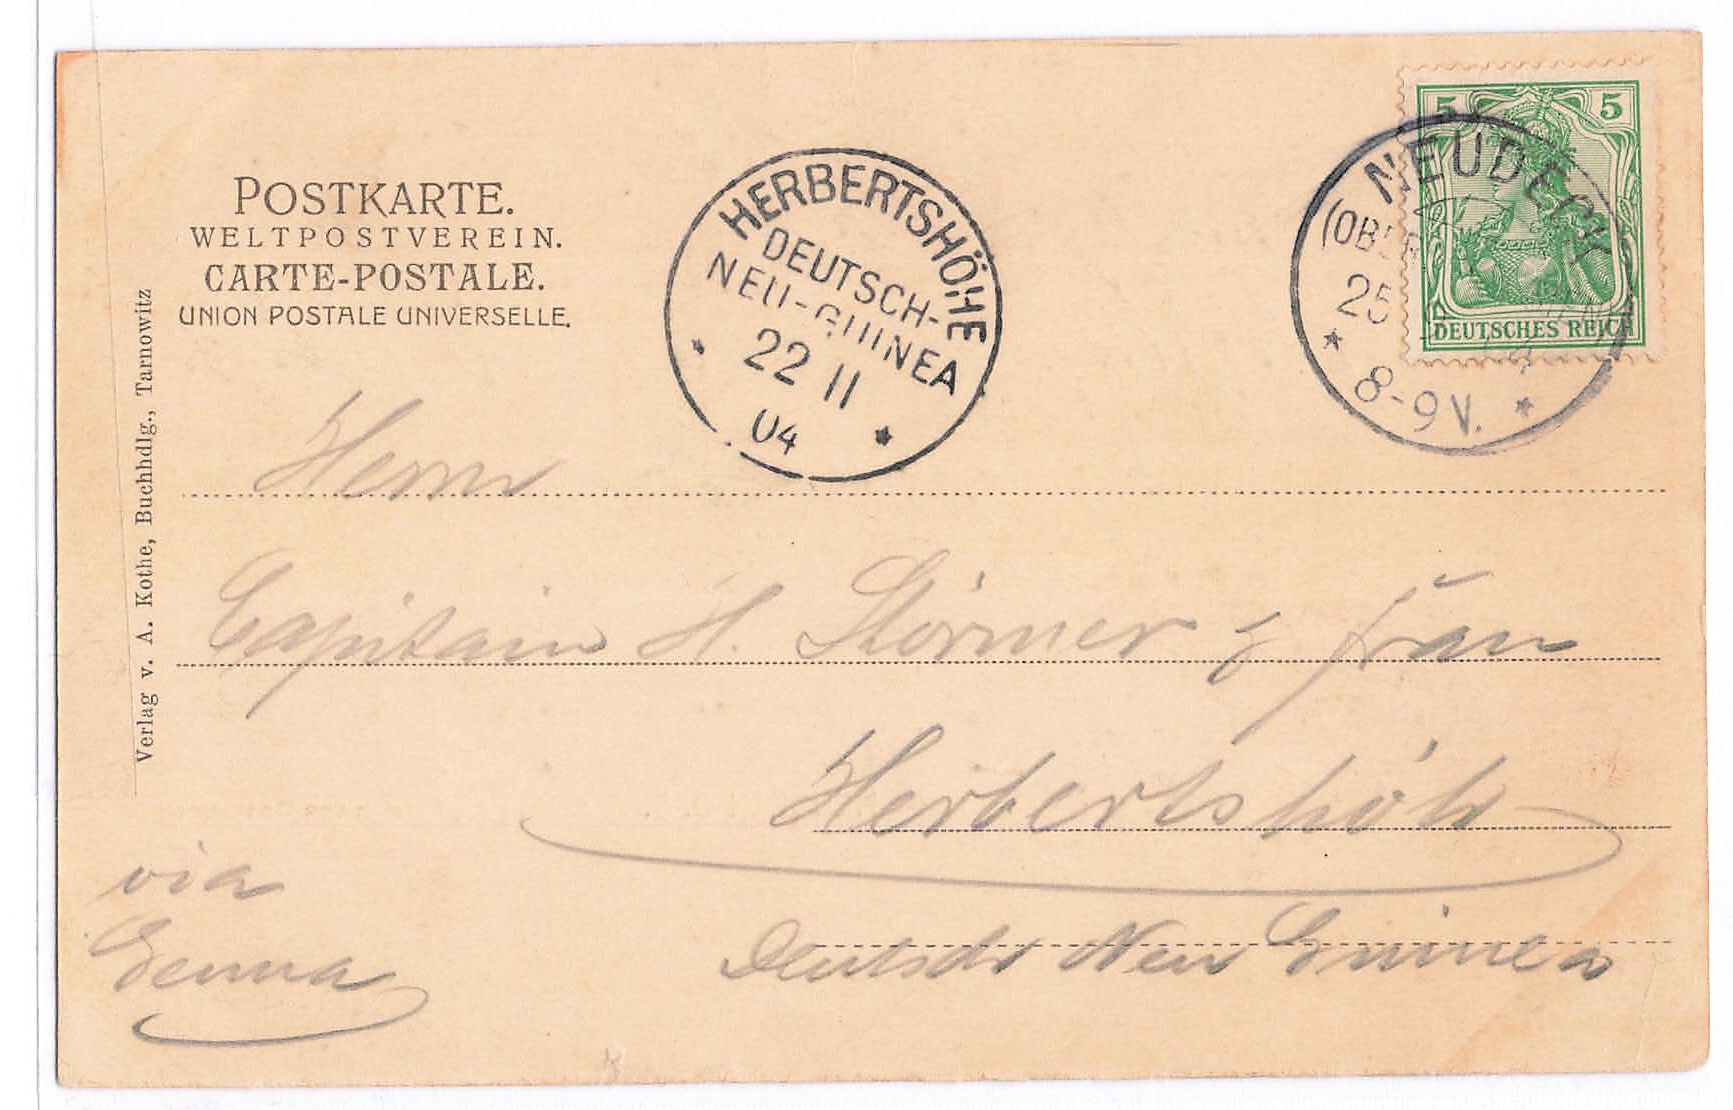 POSTKARTE.
WELTPOSTVEREIN.
CARTE-POSTALE.
UNION POSTALE UNIVERSELLE.
Verlag v. A. Kothe, Buchhdlg., Tarnowitz
HERBERTSHÖHE
DEUTSCH-
NEU-GUINEA
22 11
04
5 5
DEUTSCHES REICH
NEUDECK
25
8-9V.
Herrn
Capitain H. Störmer & Frau
Herbertshöh
Deutsch Neu Guinea
via
Genua